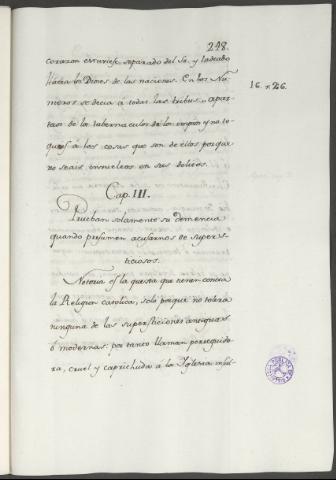 248.
corazon estuviese separado del Sr. y ladeado
hacia los Dioses de las naciones. En los Nu-
meros se decia á todas las tribus, apar-
taos de los tabernaculos de los impios y no to-
queis á las cosas que son de ellos porque
no seais envueltos en sus delitos.
16. v. 26.
Cap. III.
Prueban solamente su demencia
quando presumen acusarnos de supers-
ticiosos.
Notoria es la questa que tienen contra
la Religion catolica, solo porque no tolera
ninguna de las supersticiones antiguas
ó modernas: por tanto llaman perseguido-
ra, cruel y caprichuda á la Iglesia